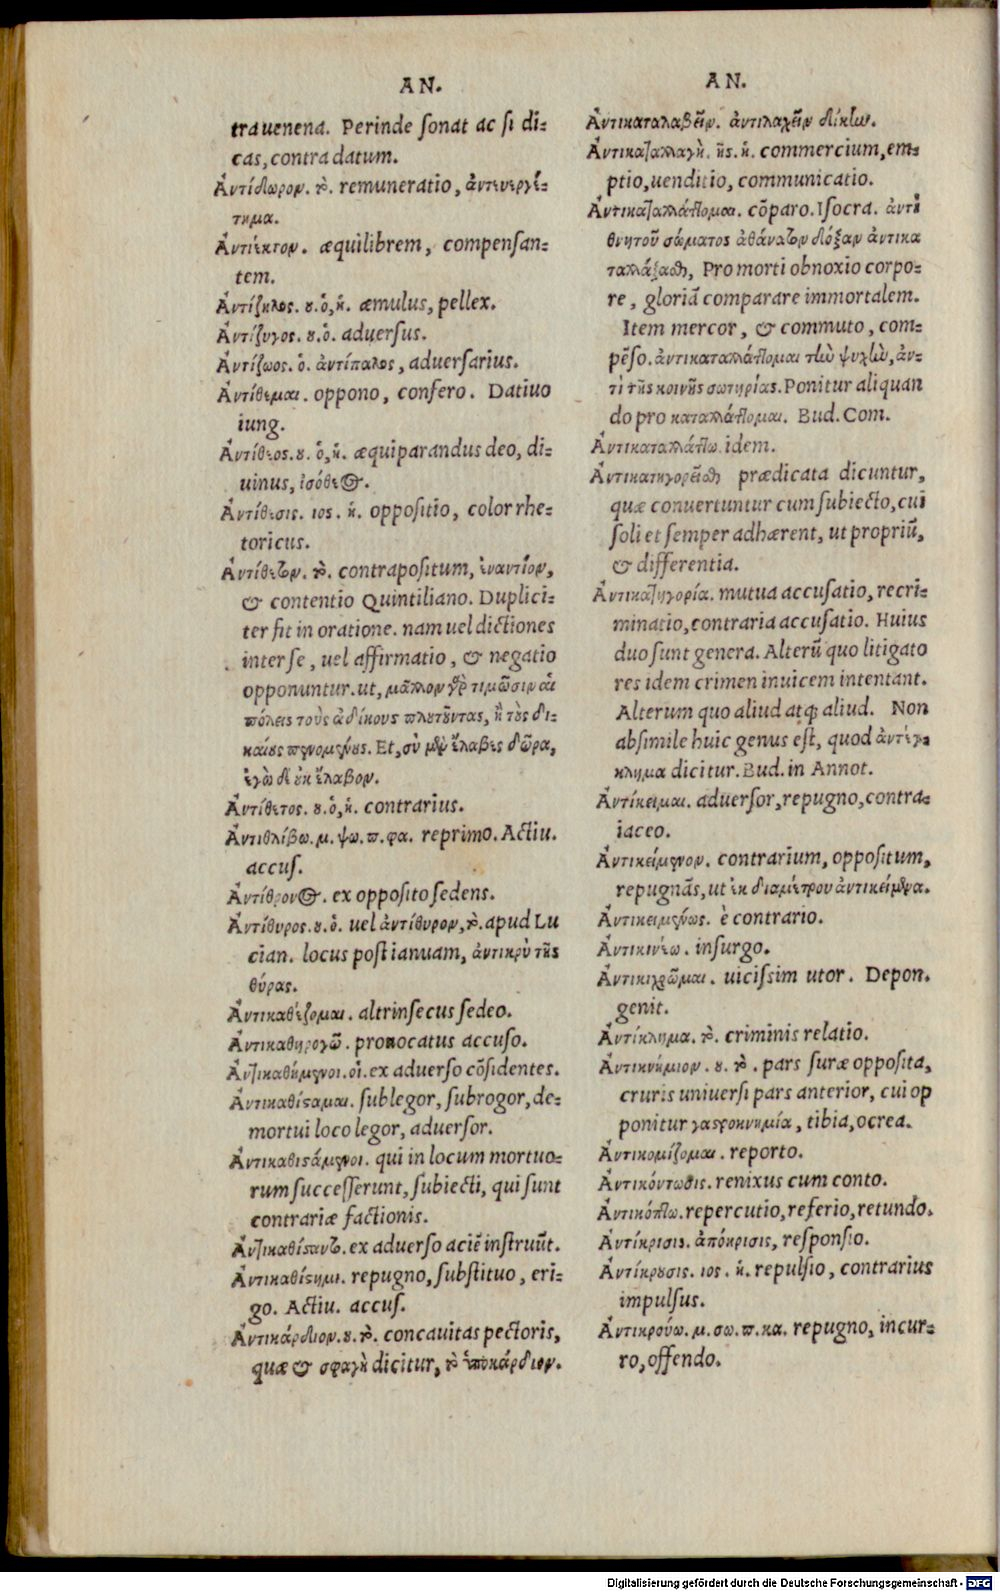 AN.
tra uenena. Perinde sonat ac si di=
cas, contra datum.
Ἀντίδωρον. τὸ. remuneratio, ἀντευεργέ-
τημα.
Ἀντίεκτον. æquilibrem, compensan=
tem.
Ἀντίζηλος. ου. ὁ, ἡ. æmulus, pellex.
Ἀντίζυγος. ου. ὁ. aduersus.
Ἀντίζωος. ὁ. ἀντίπαλος, aduersarius.
Ἀντίθεμαι. oppono, confero. Datiuo
iung.
Ἀντίθεος. ου. ὁ, ἡ. æquiparandus deo, di=
uinus, ἰσόθεος.
Ἀντίθεσις. ιος. ἡ. oppositio, color rhe=
toricus.
Ἀντίθετον. τὸ. contrapositum, ἐναντίον,
& contentio Quintiliano. Duplici=
ter fit in oratione. nam uel dictiones
inter se, uel affirmatio, & negatio
opponuntur. ut, μᾶλλον γὰρ τιμῶσιν αἱ
πόλεις τοὺς ἀδίκους πλουτοῦντας, ἢ τοὺς δι-
καίους πενομένους. Et, σὺ μὲν ἔλαβες δῶρα,
ἐγὼ δ' οὐκ ἔλαβον.
Ἀντίθετος. ου. ὁ, ἡ. contrarius.
Ἀντιθλίβω. μ. ψω. π. φα. reprimo. Actiu.
accus.
Ἀντίθρονος. ex opposito sedens.
Ἀντίθυρος. ου. ὁ. uel ἀντίθυρον, τὸ. apud Lu
cian. locus post ianuam, ἀντικρὺ τῆς
θύρας.
Ἀντικαθέζομαι. altrinsecus sedeo.
Ἀντικαθηρογῶ. prouocatus accuso.
Ἀντικαθήμενοι. οἱ. ex aduerso cõsidentes.
Ἀντικαθίσαμαι. sublegor, subrogor, de=
mortui loco legor, aduersor.
Ἀντικαθισάμενοι. qui in locum mortuo=
rum successerunt, subiecti, qui sunt
contrariæ factionis.
Ἀντικαθίσαντο. ex aduerso aciẽ instruũt.
Ἀντικαθίστημι. repugno, substituo, eri=
go. Actiu. accus.
Ἀντικάρδιον. ου. τὸ. concauitas pectoris,
quæ & σφαγὴ dicitur, τὸ ὑποκάρδιον.
AN.
Ἀντικαταλαβεῖν. ἀντιλαχεῖν δίκην.
Ἀντικαταλλαγὴ. ῆς. ἡ. commercium, em=
ptio, uenditio, communicatio.
Ἀντικαταλλάττομαι. cõparo. Isocra. ἀντὶ
θνητοῦ σώματος ἀθάνατον δόξαν ἀντικα
ταλλάξασθαι, Pro morti obnoxio corpo=
re, gloriã comparare immortalem.
Item mercor, & commuto, com=
pẽso. ἀντικαταλλάττομαι τὴν ψυχὴν, ἀν-
τὶ τῆς κοινῆς σωτηρίας. Ponitur aliquan
do pro καταλλάττομαι. Bud. Com.
Ἀντικαταλλάττω. idem.
Ἀντικατηγορεῖσθαι prædicata dicuntur,
quæ conuertuntur cum subiecto, cui
soli et semper adhærent, ut propriũ,
& differentia.
Ἀντικατηγορία. mutua accusatio, recri=
minatio, contraria accusatio. Huius
duo sunt genera. Alterũ quo litigato
res idem crimen inuicem intentant.
Alterum quo aliud atq; aliud. Non
absimile huic genus est, quod ἀντέγ-
κλημα dicitur. Bud. in Annot.
Ἀντίκειμαι. aduersor, repugno, contra=
iaceo.
Ἀντικείμενον. contrarium, oppositum,
repugnãs, ut ἐκ διαμέτρου ἀντικείμενα.
Ἀντικειμένως. è contrario.
Ἀντικινέω. insurgo.
Ἀντικιχρῶμαι. uicissim utor. Depon.
genit.
Ἀντίκλημα. τὸ. criminis relatio.
Ἀντικνήμιον. ου. τὸ. pars suræ opposita,
cruris uniuersi pars anterior, cui op
ponitur γαστροκνημία, tibia, ocrea.
Ἀντικομίζομαι. reporto.
Ἀντικόντωσις. renixus cum conto.
Ἀντικόπτω. repercutio, referio, retundo.
Ἀντίκρισις. ἀπόκρισις, responsio.
Ἀντίκρουσις. ιος. ἡ. repulsio, contrarius
impulsus.
Ἀντικρούω. μ. σω. π. κα. repugno, incur=
ro, offendo.
Digitalisierung gefördert durch die Deutsche Forschungsgemeinschaft - DFG